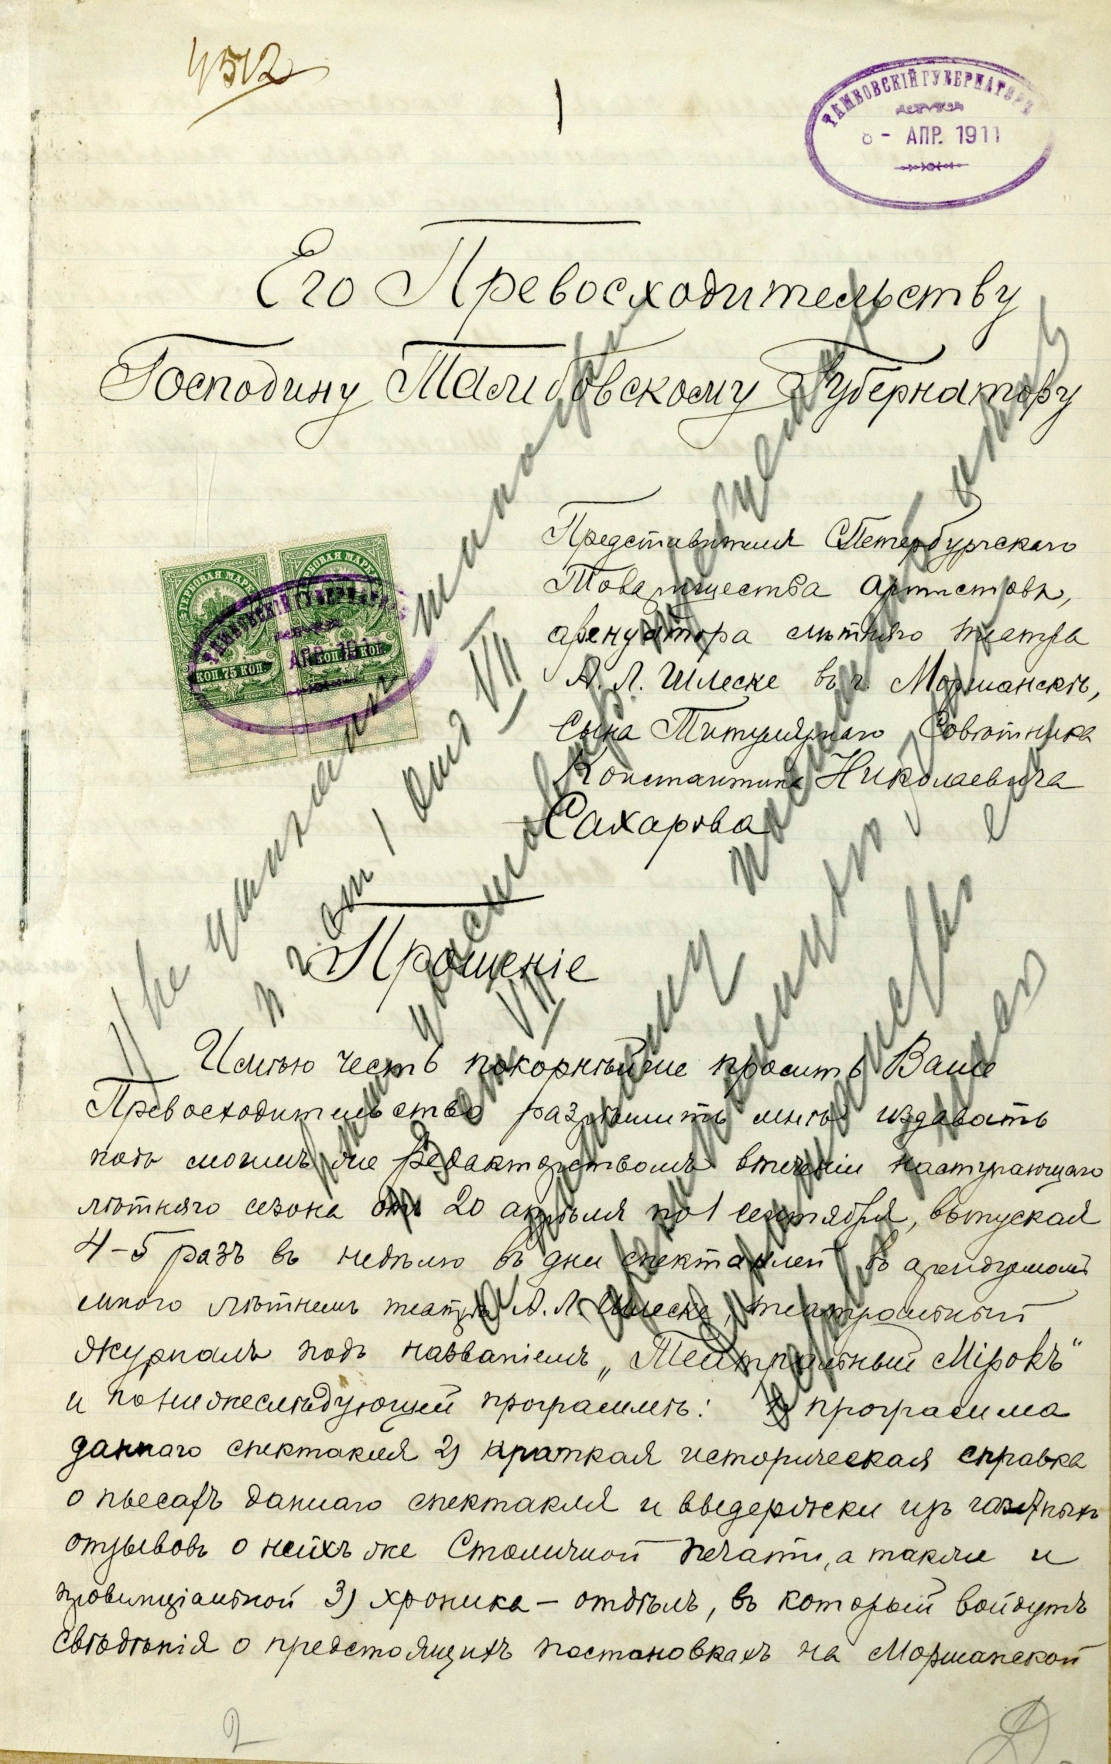 4512
1
ТАМБОВСКІЙ ГУБЕРНАТОРЪ
8 - АПР. 1911
Его Превосходительству
Господину Тамбовскому Губернатору
ГЕРБОВАЯ МАРКА
КОП. 75 КОП.
Представителя СПетербургскаго
Товарищества Артистовъ,
арендатора лѣтняго театра
А. Л. Шлеске въ г. Моршанскѣ,
Сына Титулярнаго Совѣтника
Константина Николаевича
Сахарова
Прошеніе
Имѣю честь покорнѣйше просить Ваше
Превосходительство разрѣшить мнѣ издавать
подъ моимъ же редакторствомъ втеченіи наступающаго
лѣтняго сезона отъ 20 апрѣля по 1 сентября, выпуская
4-5 разъ въ недѣлю въ дни спектаклей въ арендуемомъ
мною лѣтнемъ театрѣ А. Л. Шлеске, театральный
журналъ подъ названіемъ „Театральный Мірокъ“
и по нижеслѣдующей программѣ: 1) программа
даннаго спектакля 2) краткая историческая справка
о пьесахъ даннаго спектакля и выдержки изъ газетныхъ
отзывовъ о нихъ же Столичной печати, а также и
провинціальной 3) хроника – отдѣлъ, въ который войдутъ
свѣдѣнія о предстоящихъ постановкахъ на Моршанской
2